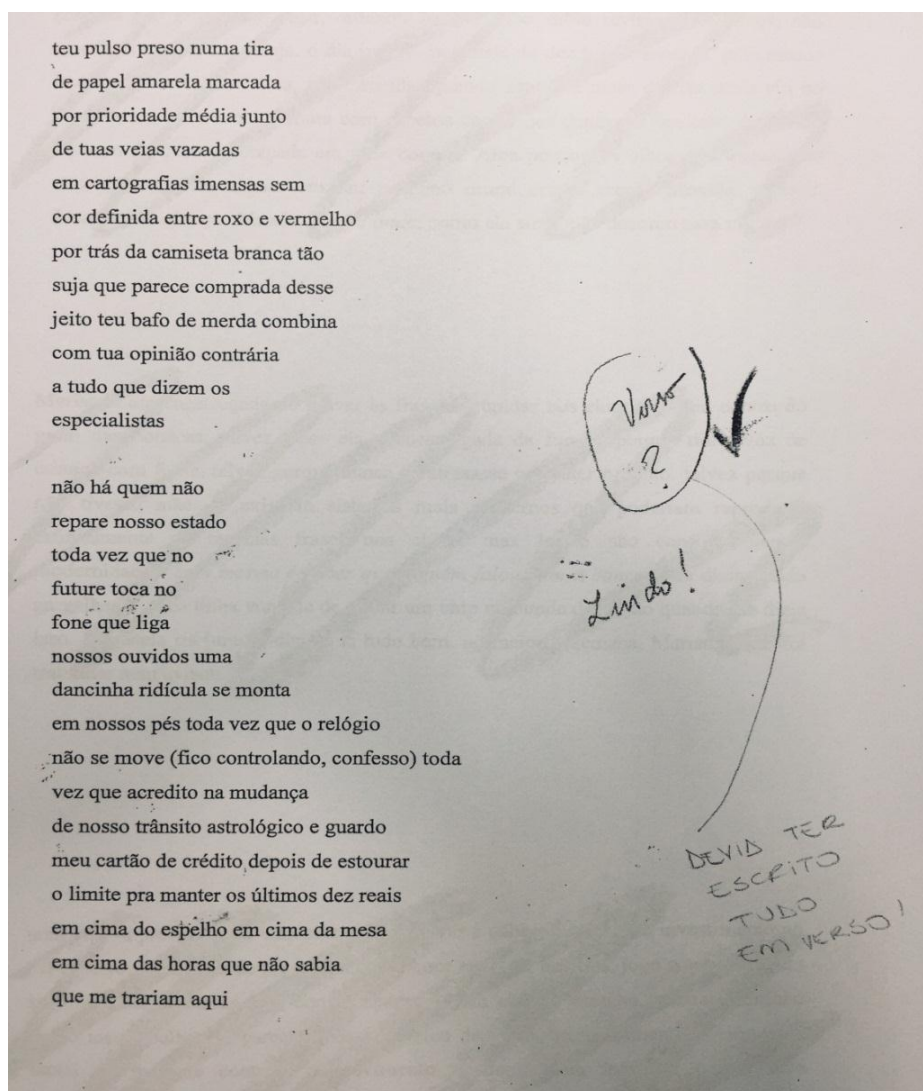 teu pulso preso numa tira
de papel amarela marcada
por prioridade média junto
de tuas veias vazadas
em cartografias imensas sem
cor definida entre roxo e vermelho
por trás da camiseta branca tão
suja que parece comprada desse
jeito teu bafo de merda combina
com tua opinião contrária
a tudo que dizem os
especialistas
não há quem não
repare nosso estado
toda vez que no
future toca no
fone que liga
nossos ouvidos uma
dancinha ridícula se monta
em nossos pés toda vez que o relógio
não se move (fico controlando, confesso) toda
vez que acredito na mudança
de nosso trânsito astrológico e guardo
meu cartão de crédito depois de estourar
o limite pra manter os últimos dez reais
em cima do espelho em cima da mesa
em cima das horas que não sabia
que me trariam aqui
Verso
?
Lindo!
DEVIA TER
ESCRITO
TUDO
EM VERSO!